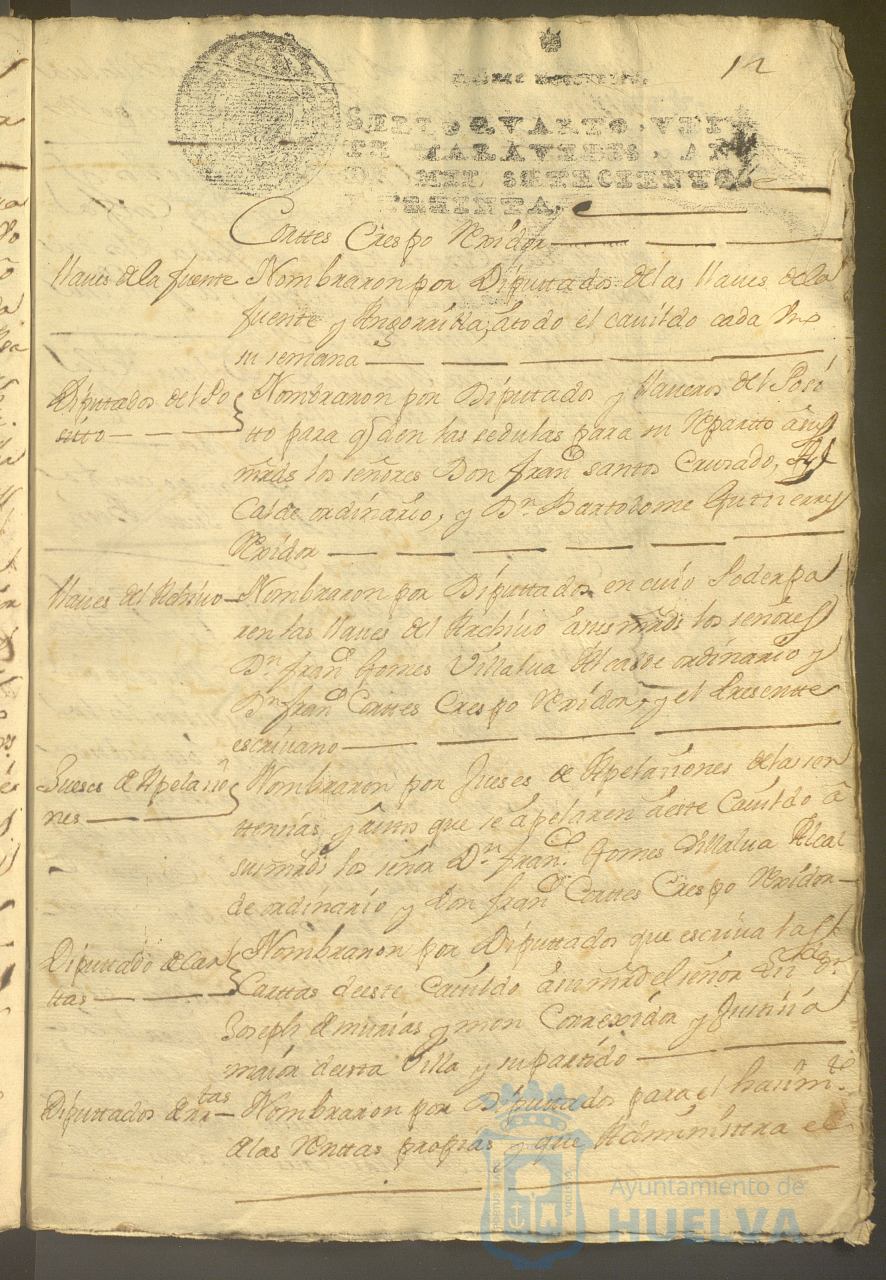 12
SELLO QVARTO, VEIN
TE MARAVEDIS, AÑ
OS DE MIL SETECIENTOS
Y TREINTA.
Corttes Crespo Rexidor
llaves de la fuente
Nombraron por Diputtados de las llaves de la
fuente y Angorrilla, a todo el cavildo cada Uno
su semana
Diputados del Po
sitto
Nombraron por Diputtados y llaveros del Posi
tto para q den las sedulas para su Repartto a sus
mrds los señores Don franco santos Cruzado, Al
Calde ordinario, y Dn Bartolome Gutierres
Rexidor
llaves del Rchivo
Nombraron por Diputtados en cuio Poder pa
ren las llaves del Archivo a sus mrds los señores
Dn franco Gomes Villalva Alcalde ordinario y
Dn franco Corttes Crespo Rexidor, y el Presentte
escrivano
Jueses de Apelacio
nes
Nombraron por Jueses de Apelaciones de las sen
ttencias, y autto que se apelaren a estte Cavildo a
sus mrds los señor Dn franco Gomes Villalva Alcal
de ordinario y Don franco Corttes Crespo Rexidor
Diputtado de Car
ttas
Nombraron por Diputtados que escriva las
Carttas de este Cavildo a su mrd el señor
Joseph de murias y mon Correxidor y Justicia
maior de esta Villa y su partido
Diputtados de Rtas
Nombraron por Diputtados para el hacimto
de las Renttas propias y que Administra el
Ayuntamiento de
HUELVA